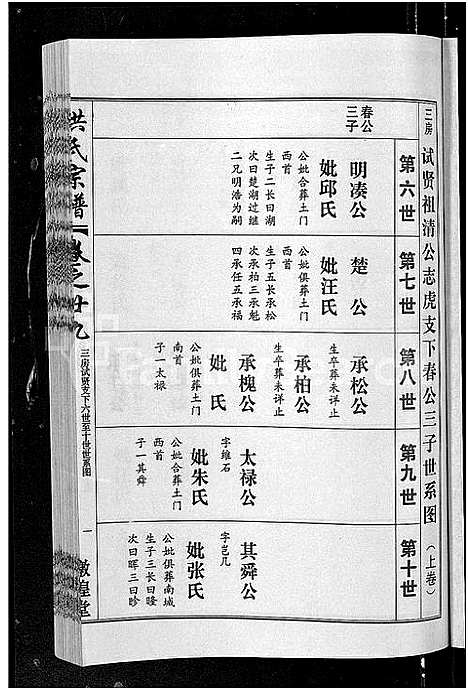 三房 试贤祖清公志虎支下春公三子世系图（上卷）
第六世
第七世
第八世
第九世
第十世
春公
三子
明凑公
妣邱氏
公妣合葬土门
西首
生子二长曰湖
次曰楚湖过继
二兄明浩为嗣
楚公
妣汪氏
公妣俱葬土门
西首
生子五长承松
次承柏三承魁
四承任五承福
承松公
生卒葬未详止
承柏公
生卒葬未详止
承槐公
妣 氏
公妣俱葬土门
南首
子一太禄
太禄公
字维石
妣朱氏
公妣合葬土门
西首
子一其舜
其舜公
字岂几
妣张氏
公妣俱葬南城
生子三长曰暲
次曰晖三曰昣
洪氏宗谱
卷之廿九
三房试贤支下六世至十世世系图
一
敦煌堂